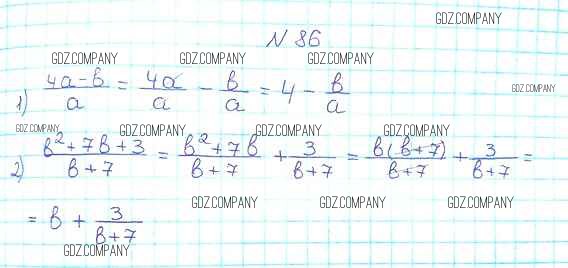 GDZ.COMPANY
N 86
GDZ.COMPANY GDZ.COMPANY GDZ.COMPANY
1) (4a-b)/a = 4a/a - b/a = 4 - b/a
GDZ.COMPANY
GDZ.COMPANY GDZ.COMPANY GDZ.COMPANY GDZ.COMPANY
2) (b²+7b+3)/(b+7) = (b²+7b)/(b+7) + 3/(b+7) = b(b+7)/(b+7) + 3/(b+7) =
GDZ.COMPANY GDZ.COMPANY GDZ.COMPANY
= b + 3/(b+7)
GDZ.COMPANY